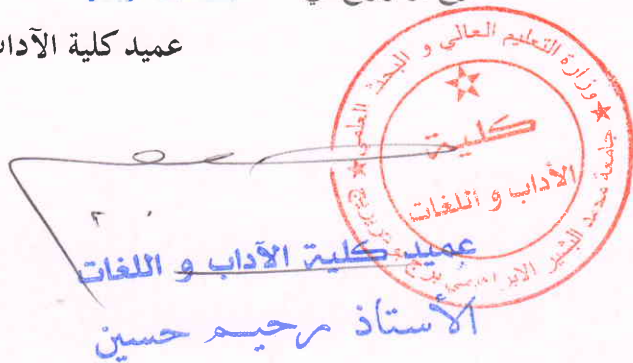 عميد كلية الآداب
وزارة التعليم العالي و البحث العلمي
جامعة محمد البشير الإبراهيمي برج بوعريريج
كلية
الأداب و اللغات
عميد كلية الآداب و اللغات
الأستاذ رحيم حسين